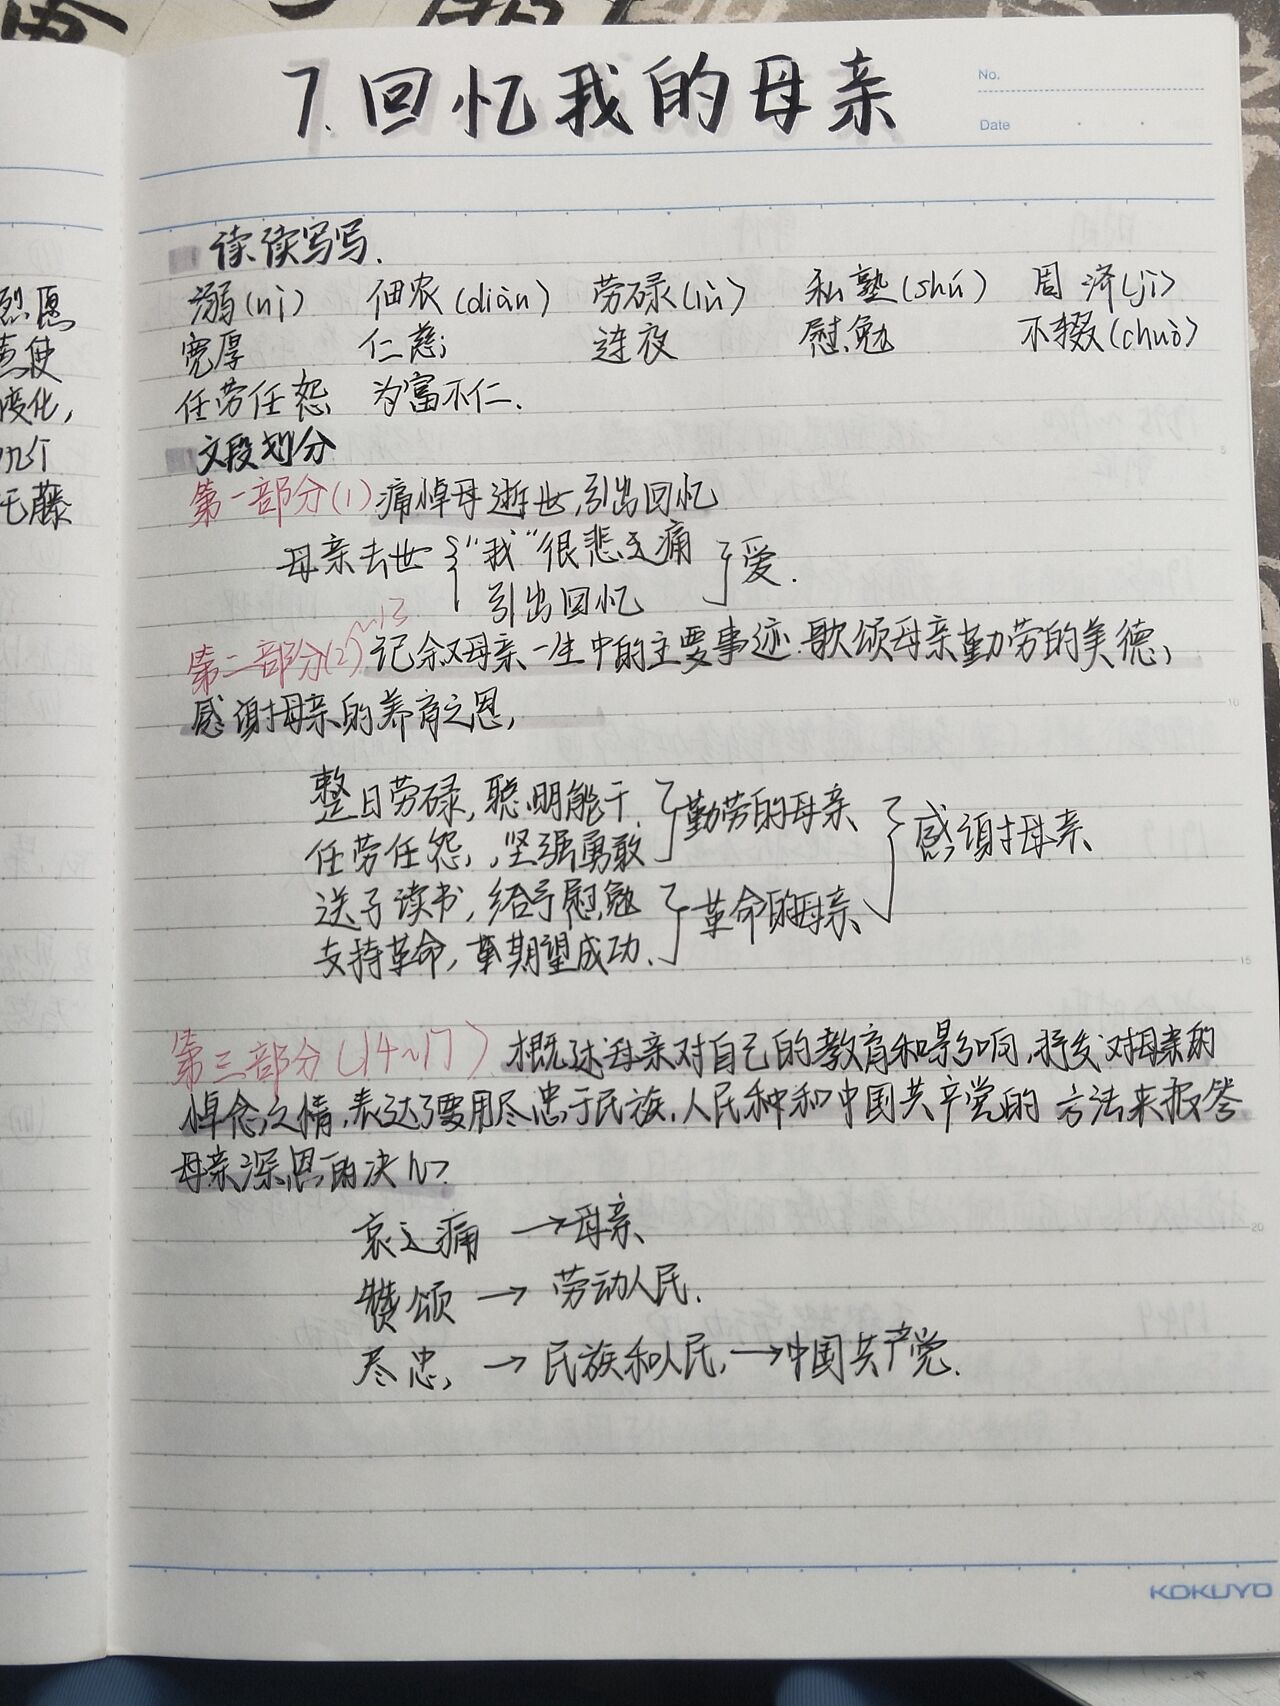 7.回忆我的母亲
No.
Date
读读写写.
溺(nì) 佃农(diàn) 劳碌(lù) 私塾(shú) 周济(jì)
宽厚 仁慈 连夜 慰勉 不辍(chuò)
任劳任怨 为富不仁.
文段划分
第一部分(1) 痛悼母逝世,引出回忆
母亲去世 "我"很悲痛 爱.
引出回忆
第二部分(2~13) 记叙母亲一生中的主要事迹.歌颂母亲勤劳的美德,
感谢母亲的养育之恩,
整日劳碌,聪明能干. 勤劳的母亲 感谢母亲
任劳任怨,坚强勇敢
送子读书,给予慰勉 革命的母亲
支持革命,期望成功.
第三部分(14~17) 概述母亲对自己的教育和影响,抒发对母亲的
悼念之情,表达了要用尽忠于民族,人民种和中国共产党的方法来报答
母亲深恩的决心.
哀痛 →母亲
赞颂 → 劳动人民.
尽忠, → 民族和人民, →中国共产党.
烈愿
使
变化,
九个
毛藤
KOKUYO